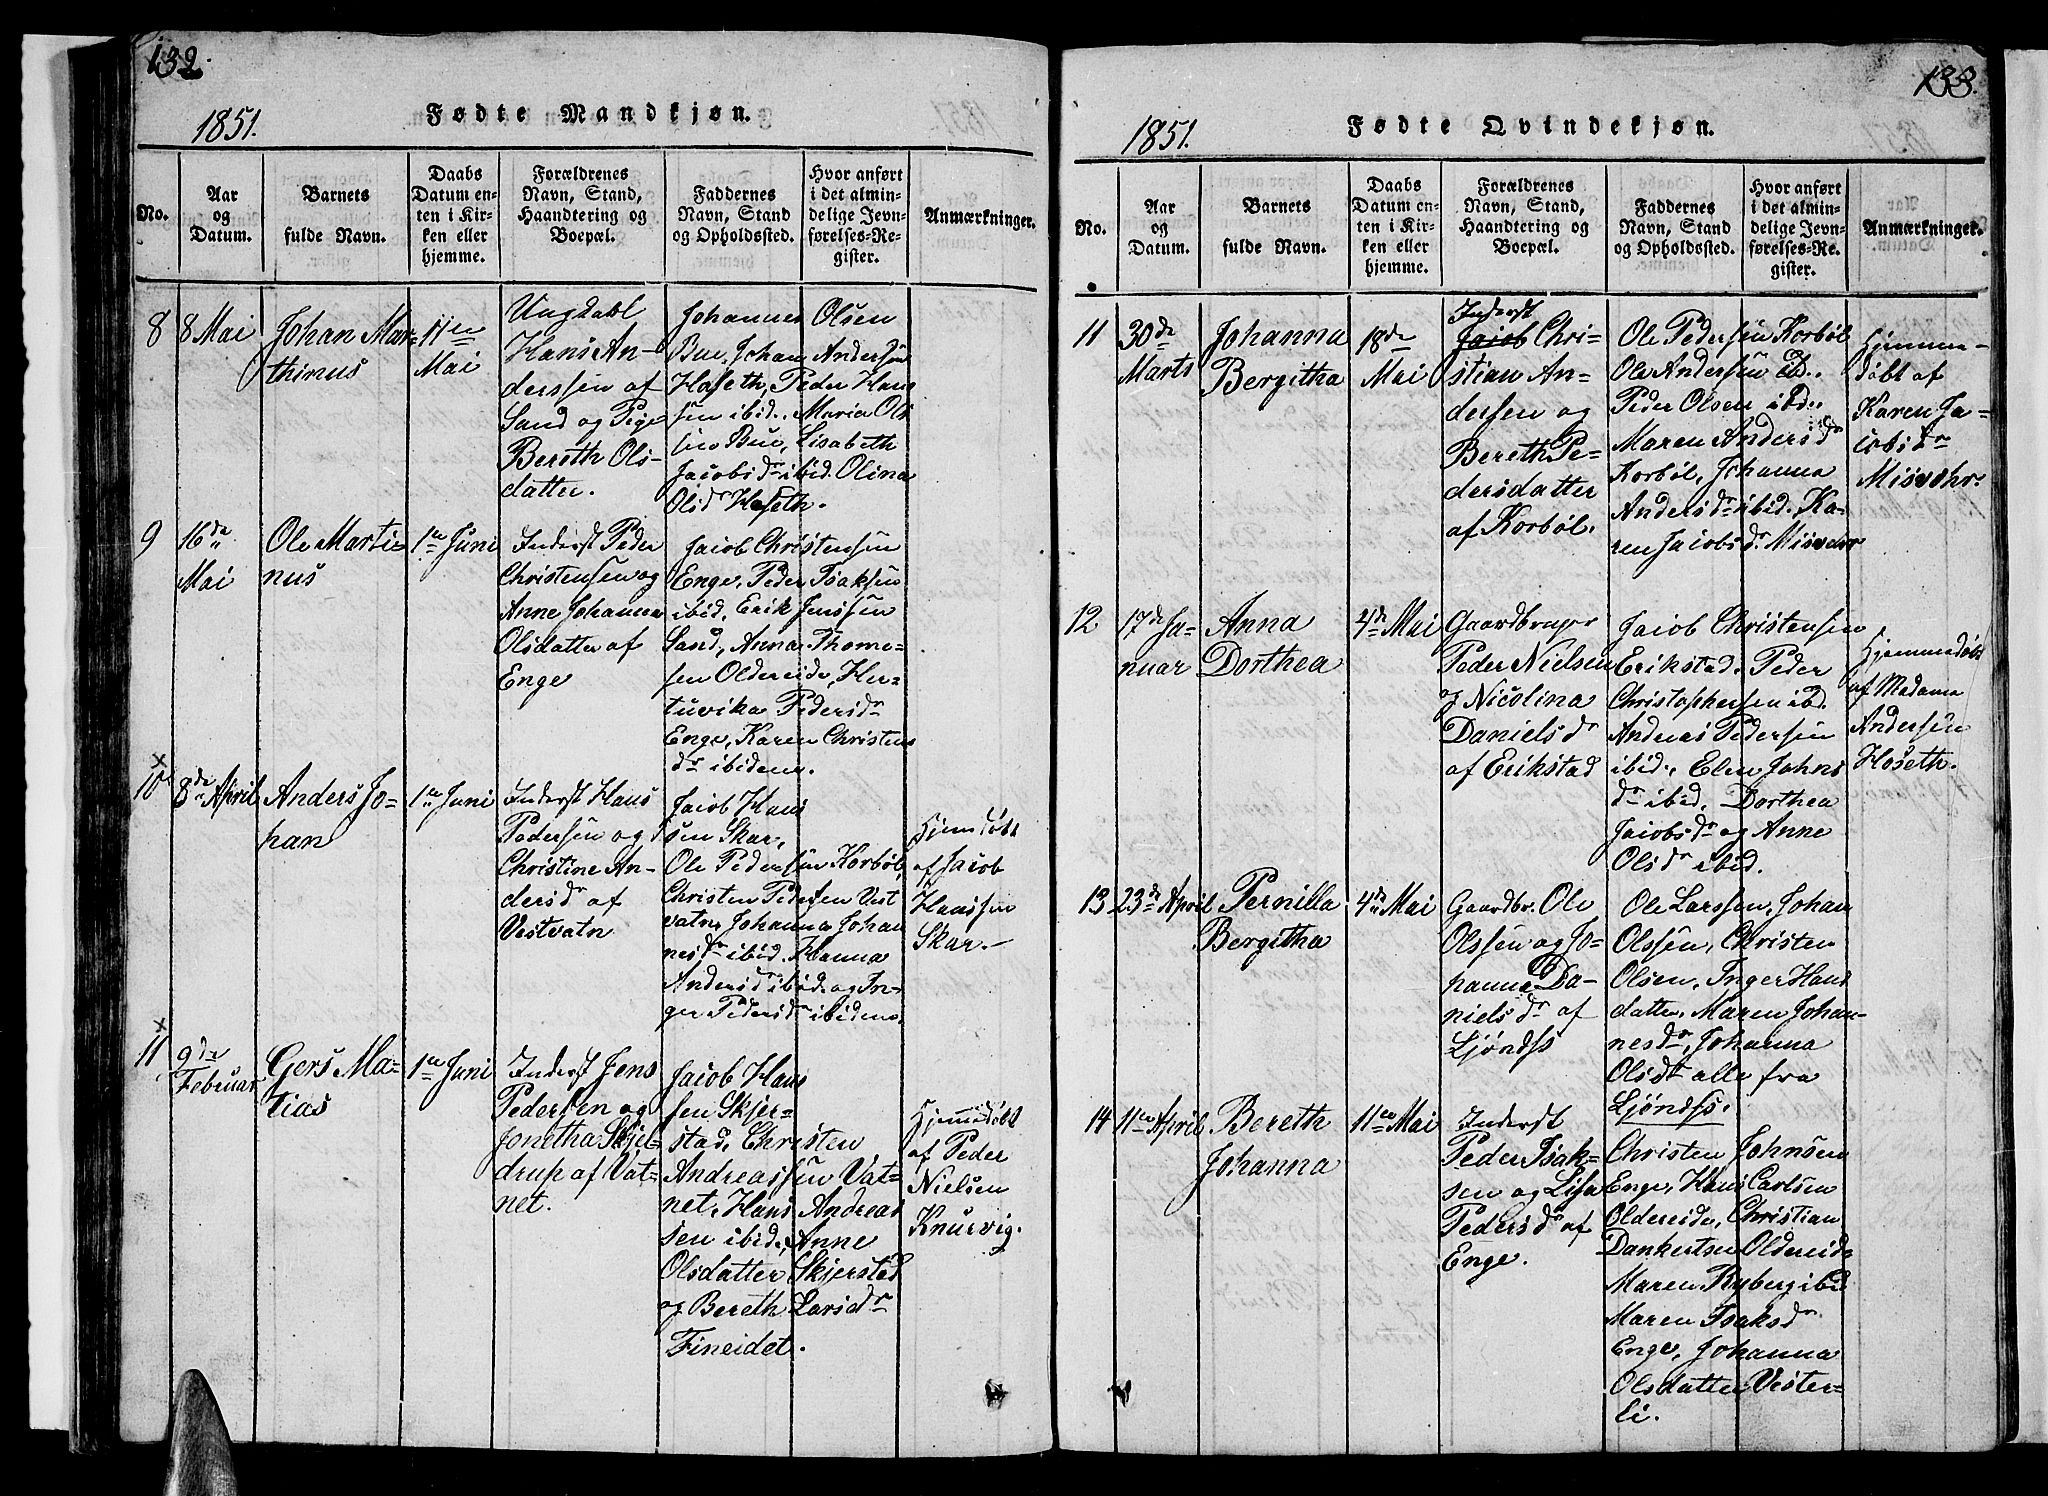 132.
1851.
Fødte Mandkjøn.
No.
Aar
og
Datum.
Barnets
fulde Navn.
Daabs
Datum en-
ten i Kir-
ken eller
hjemme.
Forældrenes
Navn, Stand,
Haandtering og
Boepæl.
Faddernes
Navn, Stand
og Opholdssted.
Hvor anført
i det almin-
delige Jevn-
førelses-Re-
gister.
Anmærkninger.
8
8 Mai
Johan Mar-
thinus
11te
Mai
Ungdahl
Hans An-
derssen af
Sand og Pige
Bereth Ols-
datter.
Johannes Olsen
Bue, Johan Andersen
Hoseth, Peder Hans
sen ibid. Maria Ols
Bue, Lisabeth
Jacobsdr ibid. Olina
Olsdr Hoseth.
9
16de
Mai
Ole Marti-
nus
1te Juni
Inderst Peder
Christensen og
Anne Johanna
Olsdatter af
Enge
Jacob Christensen
Enge, Peder Isaksen
ibid, Erik Jenssen
Sand, Anna Thome-
sen Oldereide, Her-
tuvika Pedersdr
Enge, Karen Christens
dr ibidem.
x
10
8de April
Anders Jo-
han
1te Juni
Inderst Hans
Pedersen og
Christine An-
dersdr af
Vestvatn
Jacob Hans
sen Skar,
Ole Pedersen Korbøl,
Christen Pedersen Vest
vatn, Johanna Johan
nesdr ibid. Hanna
Andersdr ibid. og In-
ger Pedersdr ibidem.
Hjemdøbt
af Jacob
Hanssen
Skar.-
x
11
9de
Februar
Gers Ma-
tias
1te Juni
Inderst Jens
Pedersen og
Jonetha Skjel-
drup af Vat-
net.
Jacob Hans
sen Skjer-
stad, Christen
Andreassen Vat-
net, Hans Andreas
sen ibid., Anne
Olsdatter Skjerstad
og Bereth Larsdr
Fineidet.
Hjemmedøbt
af Peder
Nielsen
Knurvig.
133.
1851.
Fødte Qvindekjøn.
No.
Aar
og
Datum.
Barnets
fulde Navn.
Daabs
Datum en-
ten i Kir-
ken eller
hjemme.
Forældrenes
Navn, Stand,
Haandtering og
Boepæl.
Faddernes
Navn, Stand
og Opholdssted.
Hvor anført
i det almin-
delige Jevn-
førelses-Re-
gister.
Anmærkninger.
11
30de
Marts
Johanna
Bergitha
18de
Mai
Inderst
Jacob Chri-
stian An-
dersen og
Bereth Pe-
dersdatter
af Korbøl.
Ole Pedersen Korbøl
Ole Andersen ibd.
Peder Olsen ibd.
Maren Andersdr
Korbøl, Johanna
Andersdr ibid. Ka-
ren Jacobsdr Misvær
Hjemme-
døbt af
Karen Ja-
cobsdr
Misvær.
12
17de Ja-
nuar
Anna
Dorthea
4de Mai
Gaardbruger
Peder Nielsen
og Nicolina
Danielsdr
af Erikstad
Jacob Christensen
Erikstad, Peder
Christophersen ibd.
Andreas Pedersen
ibid., Elen Johns
dr ibid, Dorthea
Jacobsdr og Anne
Olsdr ibid.
Hjemmedøbt
af Madame
Andersen
Hoseth.
13
23de April
Pernilla
Bergitha
4de Mai
Gaardbr. Ole
Olssen og Jo-
hanna Da-
nielsdr af
Ljøndss
Ole Larssen, Johan
Olssen, Christen
Olsen, Inger Hans
datter, Maren Johan-
nesdr, Johanna
Olsdr alle fra
Ljøndss.
14
11te April
Bereth
Johanna
11te Mai
Inderst
Peder Isak-
sen og Lisa
Pedersdr af
Enge.
Christen Johnsen
Enge, Hans Carlsen
Oldereide, Christian
Dankertsen Oldereide
Maren Ryberg ibid
Maren Isaksdr
Enge, Johanna
Olsdatter Vester-
li.